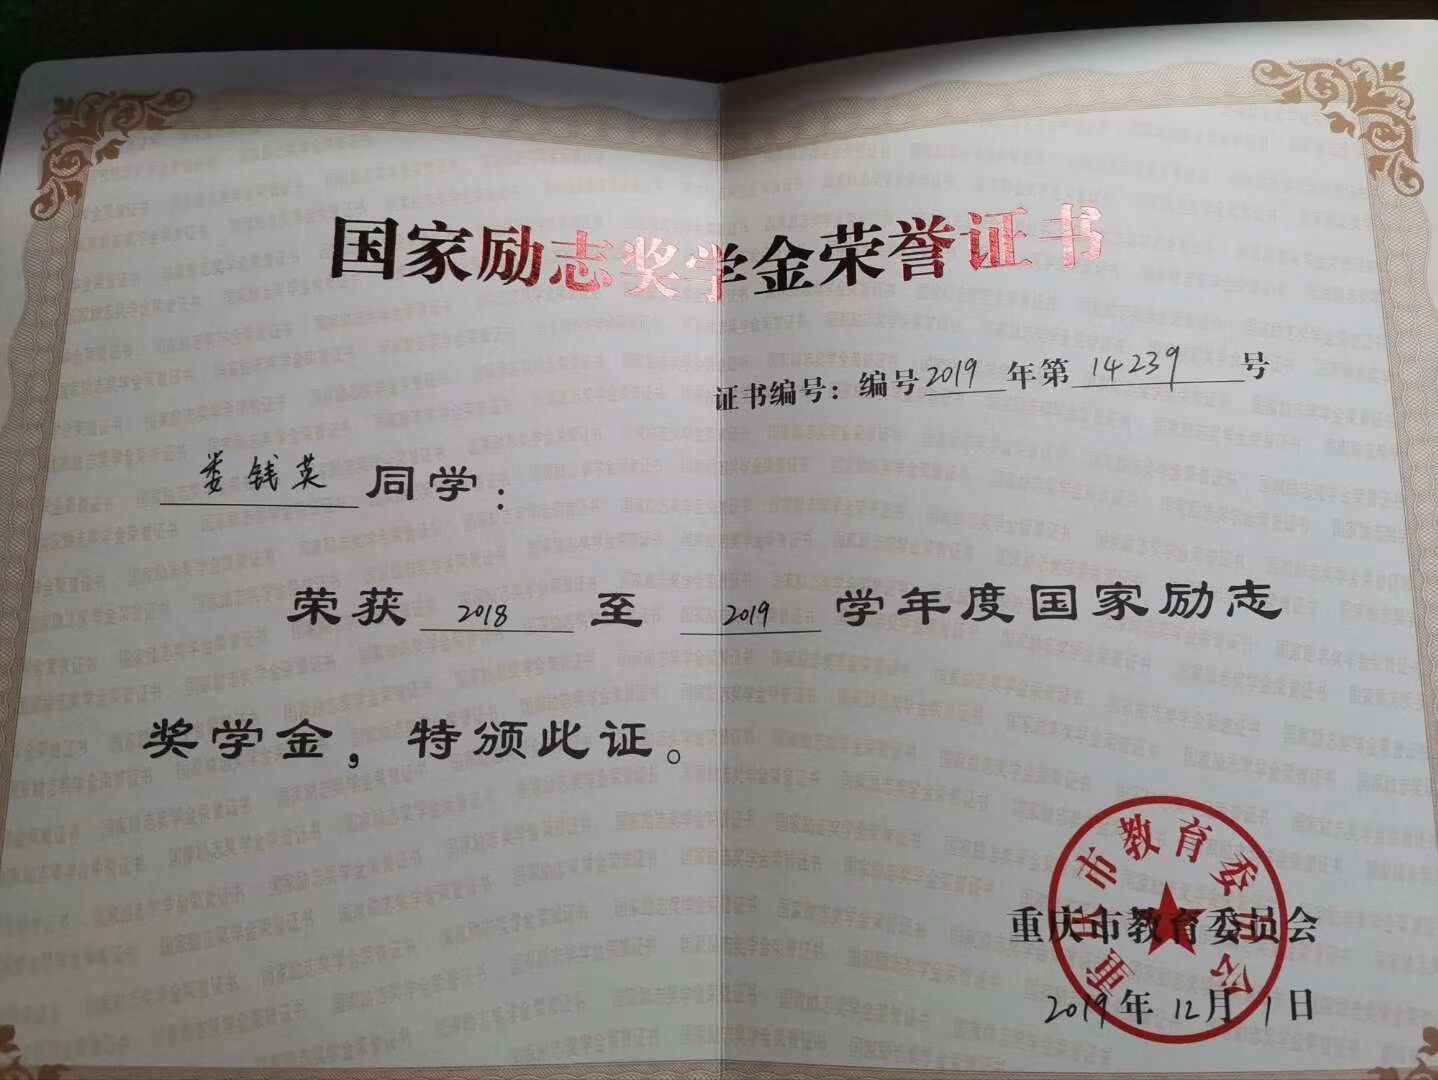 国家励志奖学金荣誉证书
证书编号：编号2019年第14239号
娄钱英同学：
荣获2018至2019学年度国家励志
奖学金，特颁此证。
重庆市教育委员会
重庆市教育委员会
2019年12月1日